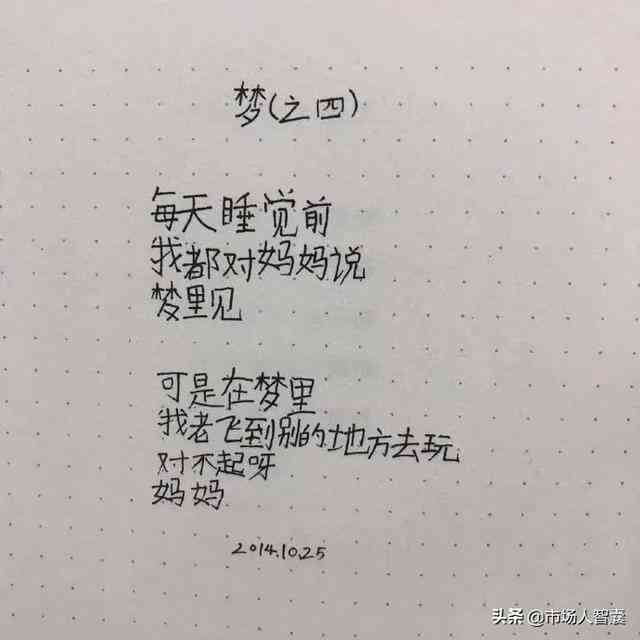 梦(之四)
每天睡觉前
我都对妈妈说
梦里见
可是在梦里
我老飞到别的地方去玩
对不起呀
妈妈
2014.10.25
头条 @市场人智囊